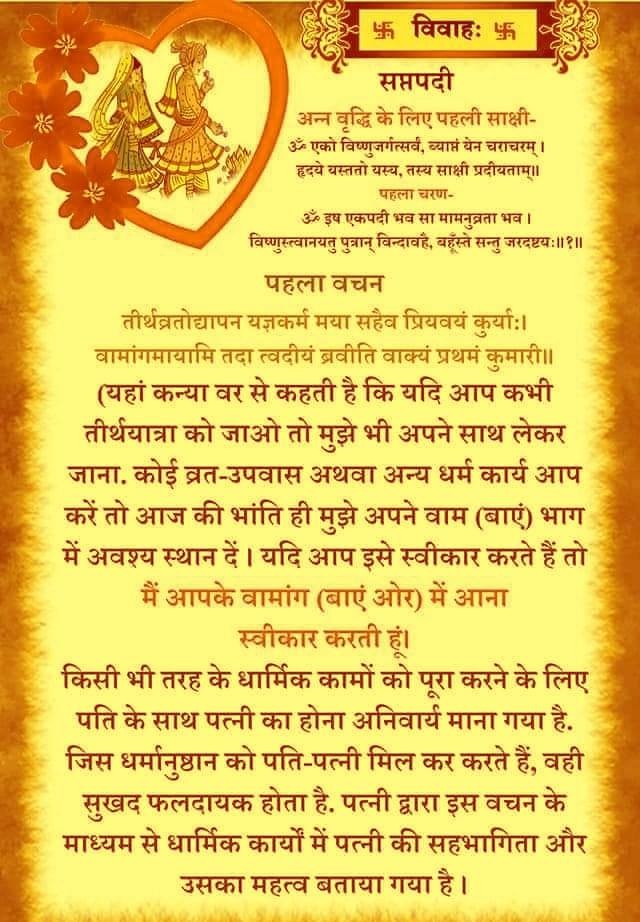 卐 विवाहः 卐
सप्तपदी
अन्न वृद्धि के लिए पहली साक्षी-
ॐ एको विष्णुजर्गत्सर्वं, व्याप्तं येन चराचरम् ।
हृदये यस्ततो यस्य, तस्य साक्षी प्रदीयताम्॥
पहला चरण-
ॐ इष एकपदी भव सा मामनुव्रता भव ।
विष्णुस्त्वानयतु पुत्रान् विन्दावहै, बहूँस्ते सन्तु जरदष्टयः॥१॥
पहला वचन
तीर्थव्रतोद्यापन यज्ञकर्म मया सहैव प्रियवयं कुर्या:।
वामांगमायामि तदा त्वदीयं ब्रवीति वाक्यं प्रथमं कुमारी॥
(यहां कन्या वर से कहती है कि यदि आप कभी
तीर्थयात्रा को जाओ तो मुझे भी अपने साथ लेकर
जाना. कोई व्रत-उपवास अथवा अन्य धर्म कार्य आप
करें तो आज की भांति ही मुझे अपने वाम (बाएं) भाग
में अवश्य स्थान दें । यदि आप इसे स्वीकार करते हैं तो
मैं आपके वामांग (बाएं ओर) में आना
स्वीकार करती हूं।
किसी भी तरह के धार्मिक कामों को पूरा करने के लिए
पति के साथ पत्नी का होना अनिवार्य माना गया है.
जिस धर्मानुष्ठान को पति-पत्नी मिल कर करते हैं, वही
सुखद फलदायक होता है. पत्नी द्वारा इस वचन के
माध्यम से धार्मिक कार्यों में पत्नी की सहभागिता और
उसका महत्व बताया गया है ।